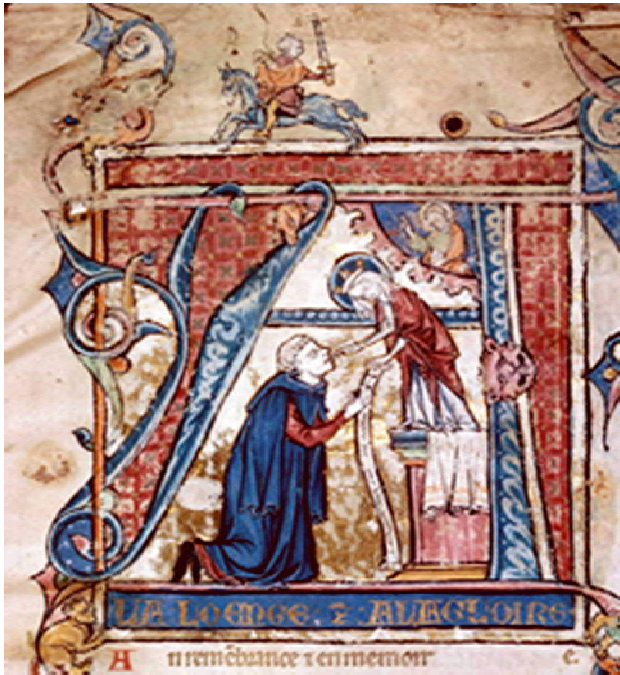 LA·LOENGE·⁊·ALAGLOIRE·
A n remēbrance ⁊ en memoir e.